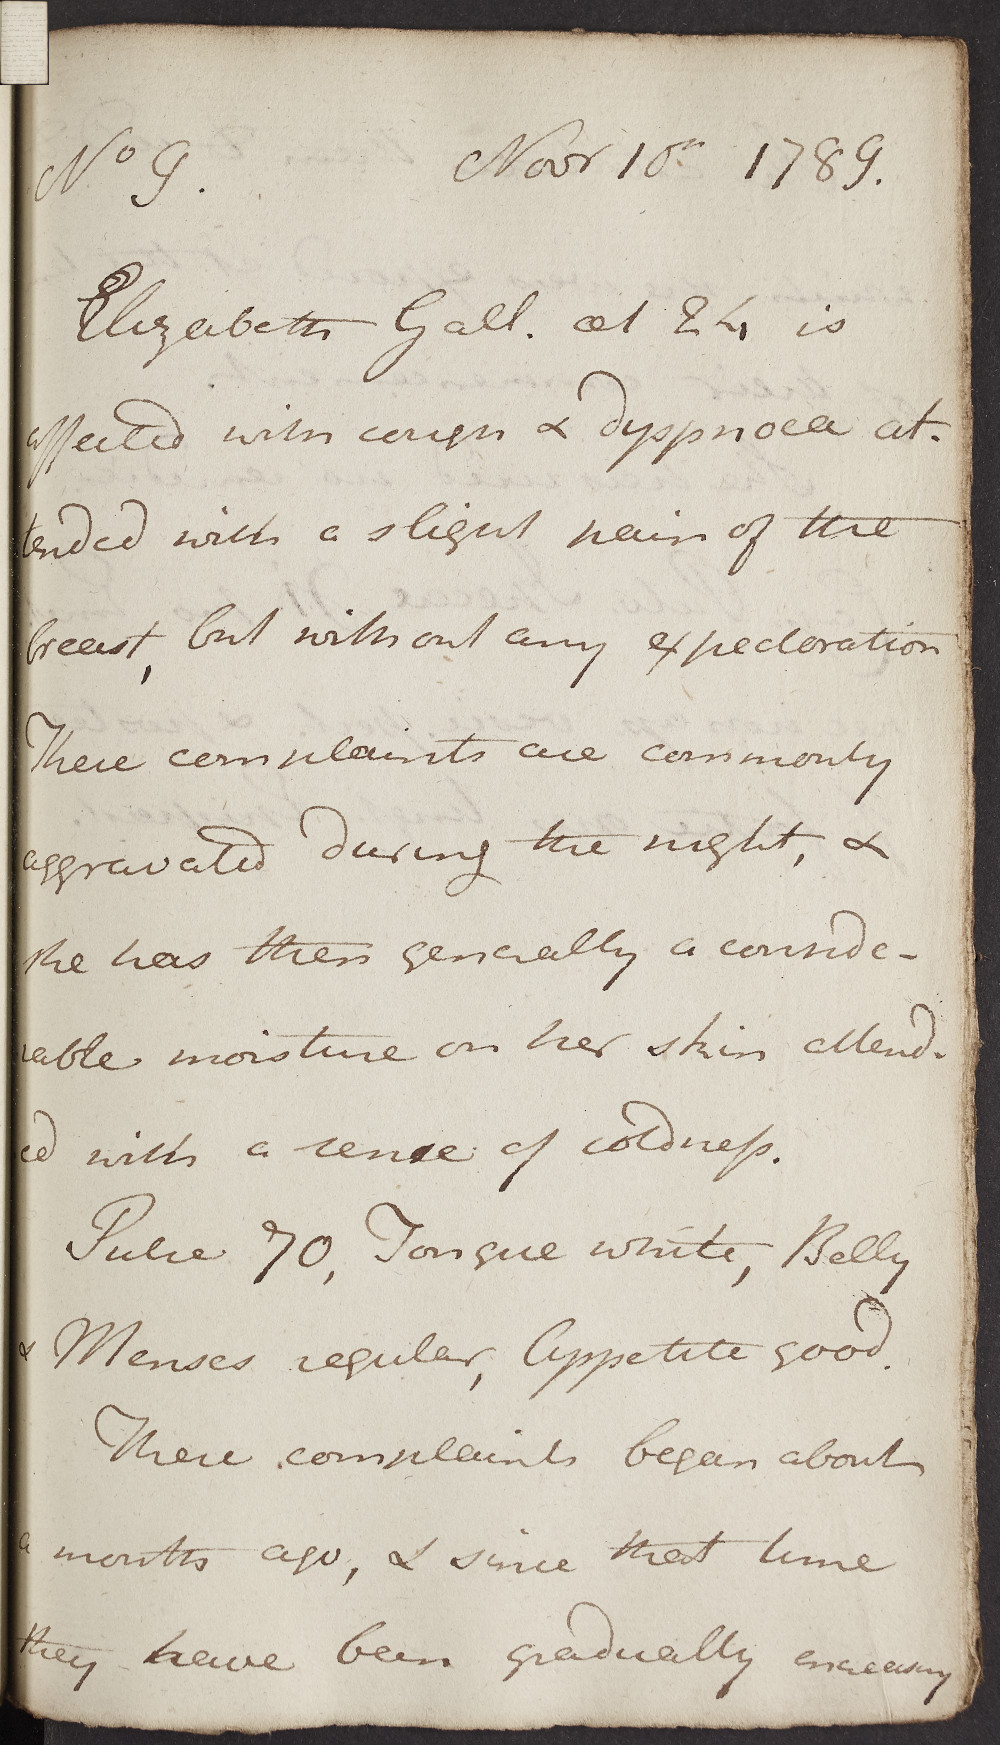 No 9. Novr 10th 1789.
Elizabeth Gall. æt 24 is
affected with cough & dyspnoea at-
tended with a slight pain of the
breast, but without any expectoration
These complaints are commonly
aggravated during the night, &
she has then generally a conside-
rable moisture on her skin attend-
ed with a sense of coldness.
Pulse 70, Tongue white, Belly
& Menses regular, Appetite good.
These complaints began about
a month ago, & since that time
they have been gradually encreasing